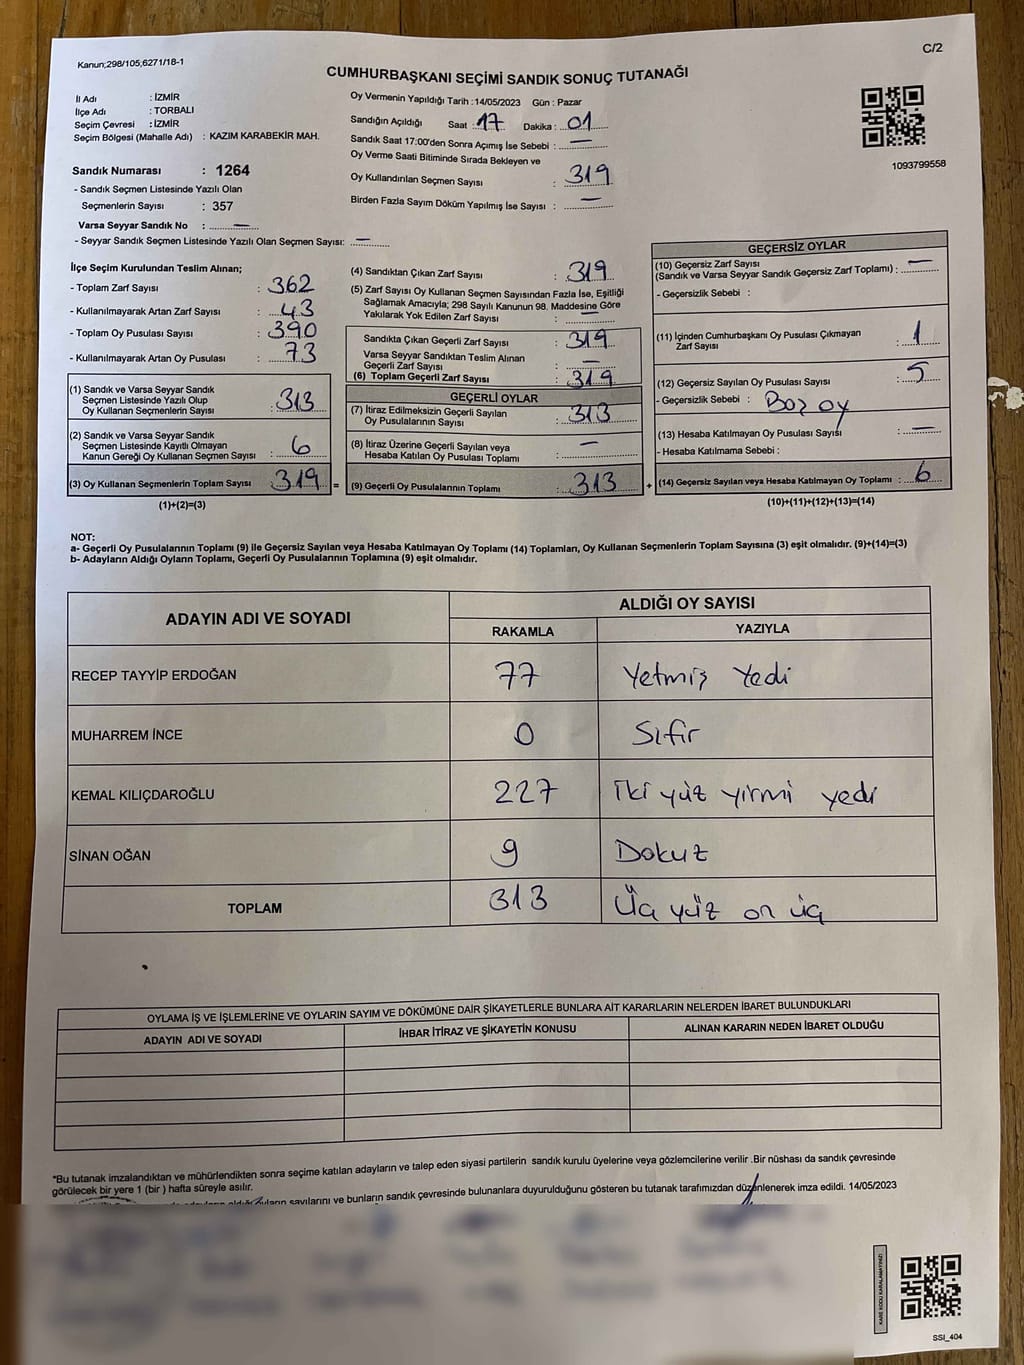 C/2
Kanun;298/105;6271/18-1
CUMHURBAŞKANI SEÇİMİ SANDIK SONUÇ TUTANAĞI
İl Adı : İZMİR
İlçe Adı : TORBALI
Seçim Çevresi : İZMİR
Seçim Bölgesi (Mahalle Adı) : KAZIM KARABEKİR MAH.
Sandık Numarası : 1264
- Sandık Seçmen Listesinde Yazılı Olan
Seçmenlerin Sayısı : 357
Varsa Seyyar Sandık No : —
- Seyyar Sandık Seçmen Listesinde Yazılı Olan Seçmen Sayısı: —
Oy Vermenin Yapıldığı Tarih :14/05/2023 Gün : Pazar
Sandığın Açıldığı Saat : 17 Dakika : 01
Sandık Saat 17:00'den Sonra Açımış İse Sebebi : —
Oy Verme Saati Bitiminde Sırada Bekleyen ve
Oy Kullandırılan Seçmen Sayısı : 319
Birden Fazla Sayım Döküm Yapılmış İse Sayısı : —
1093799558
İlçe Seçim Kurulundan Teslim Alınan;
- Toplam Zarf Sayısı : 362
- Kullanılmayarak Artan Zarf Sayısı : 43
- Toplam Oy Pusulası Sayısı : 390
- Kullanılmayarak Artan Oy Pusulası : 73
(1) Sandık ve Varsa Seyyar Sandık
Seçmen Listesinde Yazılı Olup
Oy Kullanan Seçmenlerin Sayısı : 313
(2) Sandık ve Varsa Seyyar Sandık
Seçmen Listesinde Kayıtlı Olmayan
Kanun Gereği Oy Kullanan Seçmen Sayısı : 6
(3) Oy Kullanan Seçmenlerin Toplam Sayısı : 319 =
(1)+(2)=(3)
(4) Sandıktan Çıkan Zarf Sayısı : 319
(5) Zarf Sayısı Oy Kullanan Seçmen Sayısından Fazla İse, Eşitliği
Sağlamak Amacıyla; 298 Sayılı Kanunun 98. Maddesine Göre
Yakılarak Yok Edilen Zarf Sayısı : —
Sandıkta Çıkan Geçerli Zarf Sayısı : 319
Varsa Seyyar Sandıktan Teslim Alınan
Geçerli Zarf Sayısı : —
(6) Toplam Geçerli Zarf Sayısı : 319
GEÇERLİ OYLAR
(7) İtiraz Edilmeksizin Geçerli Sayılan
Oy Pusulalarının Sayısı : 313
(8) İtiraz Üzerine Geçerli Sayılan veya
Hesaba Katılan Oy Pusulası Toplamı : —
(9) Geçerli Oy Pusulalarının Toplamı : 313 +
GEÇERSİZ OYLAR
(10) Geçersiz Zarf Sayısı
(Sandık ve Varsa Seyyar Sandık Geçersiz Zarf Toplamı) : —
- Geçersizlik Sebebi :
(11) İçinden Cumhurbaşkanı Oy Pusulası Çıkmayan
Zarf Sayısı : 1
(12) Geçersiz Sayılan Oy Pusulası Sayısı : 5
- Geçersizlik Sebebi : Boz oy
(13) Hesaba Katılmayan Oy Pusulası Sayısı : —
- Hesaba Katılmama Sebebi :
(14) Geçersiz Sayılan veya Hesaba Katılmayan Oy Toplamı : 6
(10)+(11)+(12)+(13)=(14)
NOT:
a- Geçerli Oy Pusulalarının Toplamı (9) ile Geçersiz Sayılan veya Hesaba Katılmayan Oy Toplamı (14) Toplamları, Oy Kullanan Seçmenlerin Toplam Sayısına (3) eşit olmalıdır. (9)+(14)=(3)
b- Adayların Aldığı Oyların Toplamı, Geçerli Oy Pusulalarının Toplamına (9) eşit olmalıdır.
ADAYIN ADI VE SOYADI ALDIĞI OY SAYISI
RAKAMLA YAZIYLA
RECEP TAYYİP ERDOĞAN 77 Yetmiş Yedi
MUHARREM İNCE 0 Sıfır
KEMAL KILIÇDAROĞLU 227 İki yüz yirmi yedi
SİNAN OĞAN 9 Dokuz
TOPLAM 313 Üç yüz on üç
OYLAMA İŞ VE İŞLEMLERİNE VE OYLARIN SAYIM VE DÖKÜMÜNE DAİR ŞİKAYETLERLE BUNLARA AİT KARARLARIN NELERDEN İBARET BULUNDUKLARI
ADAYIN ADI VE SOYADI İHBAR İTİRAZ VE ŞİKAYETİN KONUSU ALINAN KARARIN NEDEN İBARET OLDUĞU
*Bu tutanak imzalandıktan ve mühürlendikten sonra seçime katılan adayların ve talep eden siyasi partilerin sandık kurulu üyelerine veya gözlemcilerine verilir .Bir nüshası da sandık çevresinde
görülecek bir yere 1 (bir ) hafta süreyle asılır.
sayılarını ve bunların sandık çevresinde bulunanlara duyurulduğunu gösteren bu tutanak tarafımızdan düzenlenerek imza edildi. 14/05/2023
KARE KODU KARALAMAYINIZ!
SSI_404